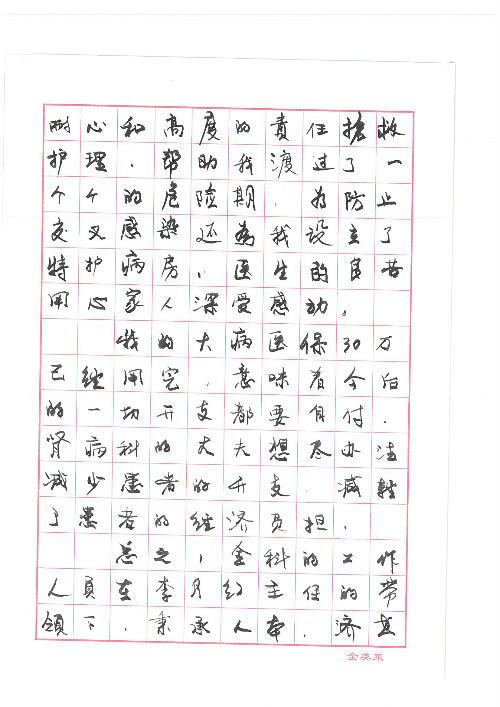 耐心和高度的責任搶救
护理．帮助我渡过了一
个个的危险期．为防止
交叉感染还为我设立了
特护病房，医生的良苦
用心家人深受感动。
我的大病医保30万
已经用完．意味着今后
的一切开支都要自付．
肾病科的大夫想尽办法
减少患者的开支．減轻
了患者的经济负担．
总之，全科的工作
人员在李月红主任的带
領下．秉承人本．济